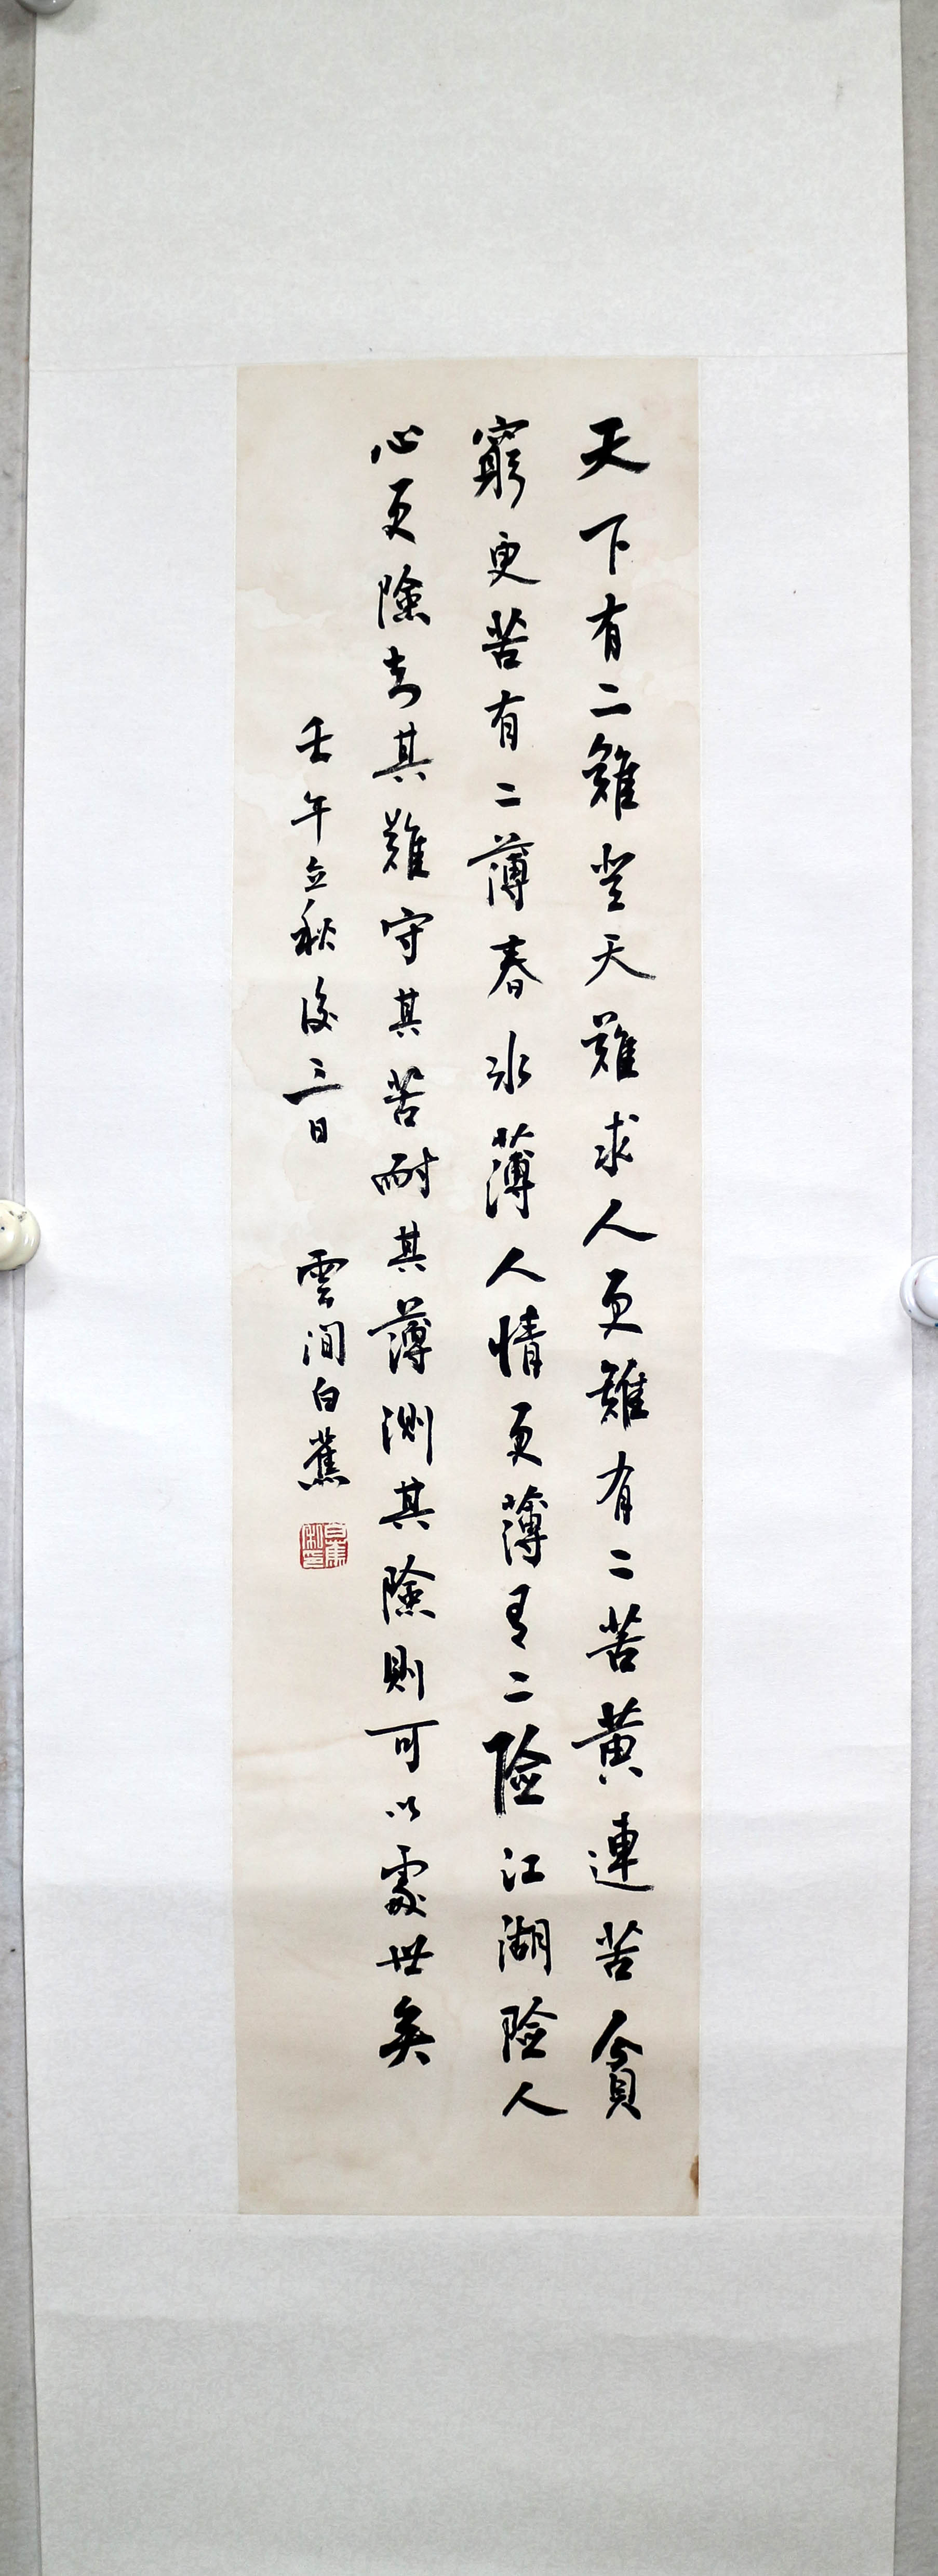 天下有二難登天難求人更難有二苦黄連苦貪
窮更苦有二薄春冰薄人情更薄有二險江湖險人
心更險知其難守其苦耐其薄測其險則可以處世矣
壬午立秋後三日 雲間白蕉
白蕉私印